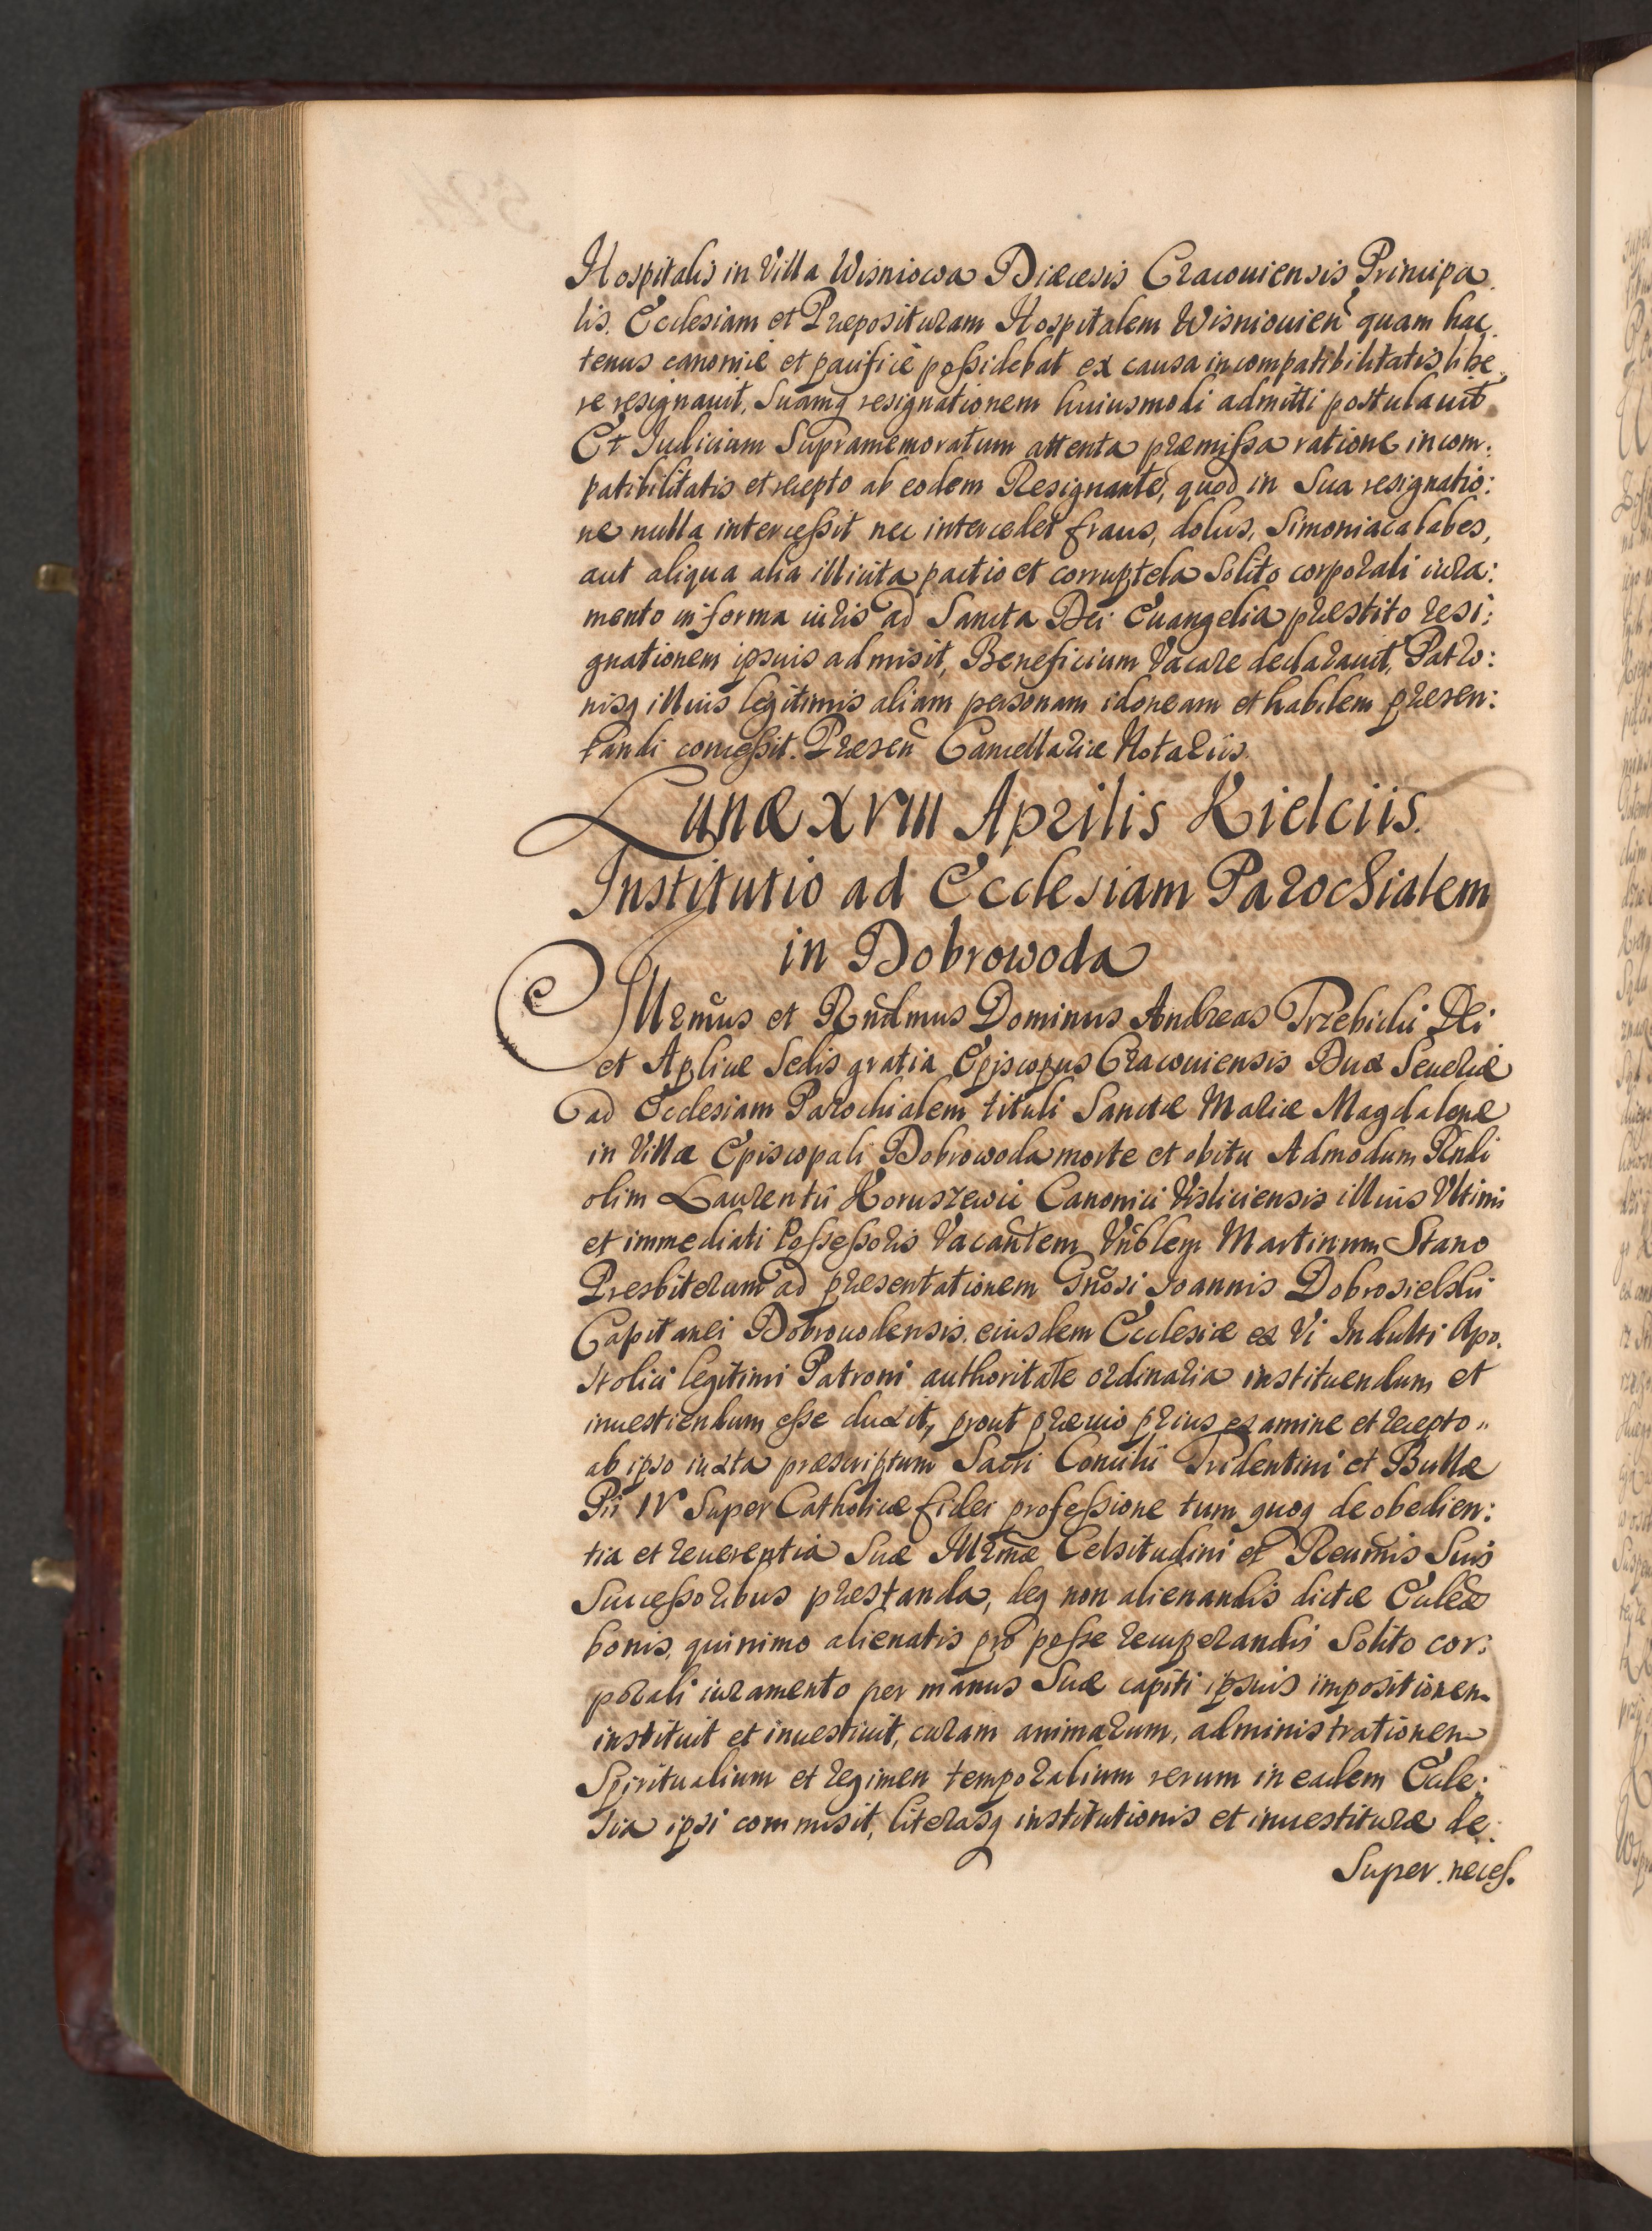 Hospitalis in Villa Wisniowa Diæcesis Cracouiensis Principa.
lis. Ecclesiam et Præposituram Hospitalem Wisniouien̄ quam hac.
tenus canonicè et pacificè possidebat ex causa incompatibilitatis, libe.
re resignauit, Suamq̨ resignationem huiusmodi admitti postulauit
Et Iudicium Supramemoratum attenta præmissa ratione incom:
patibilitatis et recepto ab eodem Resignante, quod in Sua resignatio:
ne nulla intercessit nec intercedet fraus, dolus, Simoniaca labes,
aut aliqua alia illicita pactio et corruptela Solito corporali iura:
mento in forma iuris ad Sancta Dei Euangelia præstito resi:
gnationem ipsuis admisit, Beneficium Vacare declarauit, Patro:
nisq̨ illius legitimis aliam personam idoneam et habilem præsen:
tandi concessit. Præsen̄ Cancellariæ Notariis.
Lunæ XVIII Aprilis Kielciis.
Institutio ad Ecclesiam Parochialem
in Dobrowoda
Illrmūs et Rn̄dmus Dominus Andreas Trzebicki Dei
et Aplicæ Sedis gratia Episcopus Cracouiensis Dux Seueriæ
ad Ecclesiam Parochialem tituli Sanctæ Mariæ Magdalenæ
in Villa Episcopali Dobrowoda morte et obitu Admodum Rndi
olim Laurentii Koruszewic Canonici Visliciensis illius Vltimi
et immediati Possessoris Vacantem Vn̄blem Martinum Stano
Presbiterum ad præsentationem Gn̄osi Ioannis Dobrosielski
Capitanei Dobrouodensis, eiusdem Ecclesiæ ex Vi Indulti Apo.
stolici legitimi Patroni authoritate ordinaria instituendum et
inuestiendum esse duxit, prout præuio prius examine et recepto
ab ipso iuxta præscriptum Sacri Concilii Tridentini et Bullæ
Pii IV Super Catholicæ fidei professione tum quoq̨ de obedien:
tia et reuerentia Suæ Illrmæ Celsitudini et Reūmis Suis
Successoribus præstanda, deq̨ non alienandis dictæ Ecclæ
bonis, quinimo alienatis pro posse recuperandis Solito cor:
porali iuramento per manus Suæ capiti ipsuis impositionem
instituit et inuestiuit, curam animarum, administrationem
Spiritualium et regimen temporalium rerum in eadem Eccle:
sia ipsi commisit, literasq̨ institutionis et inuestituræ de:
Super neces.